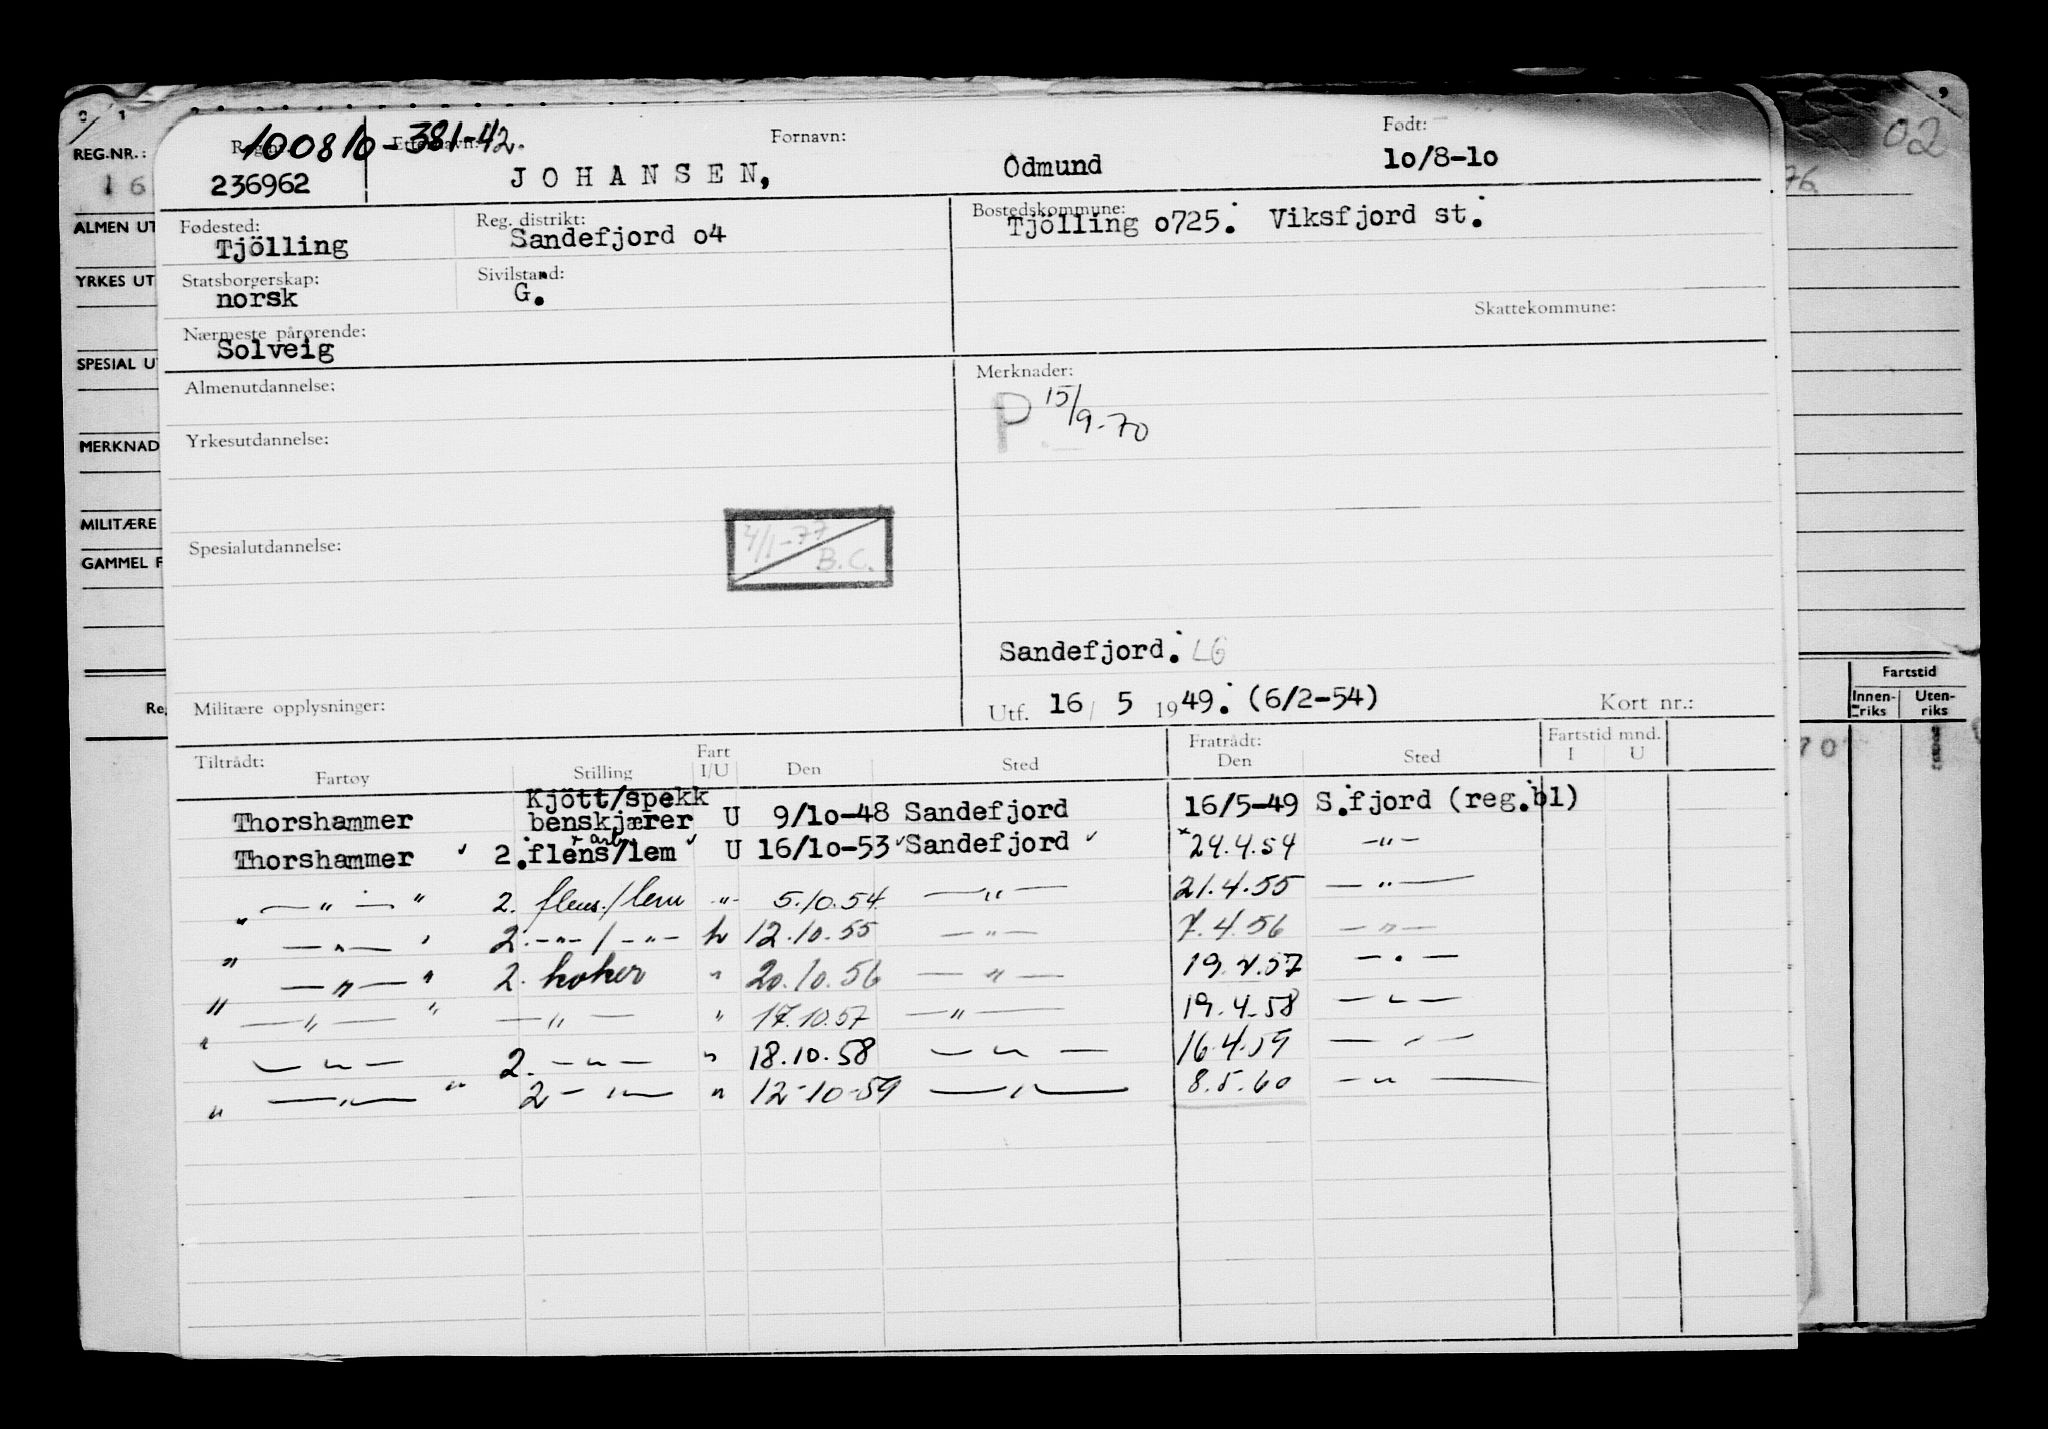 02
REG.NR.:
ALMEN UT
YRKES UT
SPESIAL U
MERKNAD
MILITÆRE
GAMMEL F
Reg
76
70
Fartstid
Innen-riks Uten-riks
100810-381-42.
Reg.nr. Etternavn: Fornavn: Født:
236962 JOHANSEN, Odmund 10/8-10
Fødested: Reg. distrikt: Bostedskommune:
Tjölling Sandefjord 04 Tjölling 0725. Viksfjord st.
Statsborgerskap: Sivilstand:
norsk G.
Skattekommune:
Nærmeste pårørende:
Solveig
Almenutdannelse: Merknader:
P 15/9-70
Yrkesutdannelse:
4/1-77 B.C.
Spesialutdannelse:
Sandefjord. LG
Militære opplysninger: Utf. 16/ 5 1949. (6/2-54) Kort nr.:
Tiltrådt: Fartøy Stilling Fart I/U Den Sted Fratrådt: Den Sted Fartstid mnd. I U
Thorshammer Kjött/spekk benskjærer U 9/10-48 Sandefjord 16/5-49 S.fjord (reg.bl)
Thorshammer ✓ 2.flens/lem + arb ✓ U 16/10-53 ✓ Sandefjord ✓ 24.4.54 -"-
" -"- " 2. flens./lem -"- 5.10.54 -"- 21.4.55 -"-
" -"- ' 2. -"- / -"- h 12.10.55 -"- 7.4.56 -"-
" -"- " 2. koker " 20.10.56 -"- 19.4.57 -"-
" -"- " -"- " 17.10.57 -"- 19.4.58 -"-
" -"- 2. -"- " 18.10.58 -"- 16.4.59 -"-
" -"- " 2 -"- " 12-10-59 -"- 8.5.60 -"-